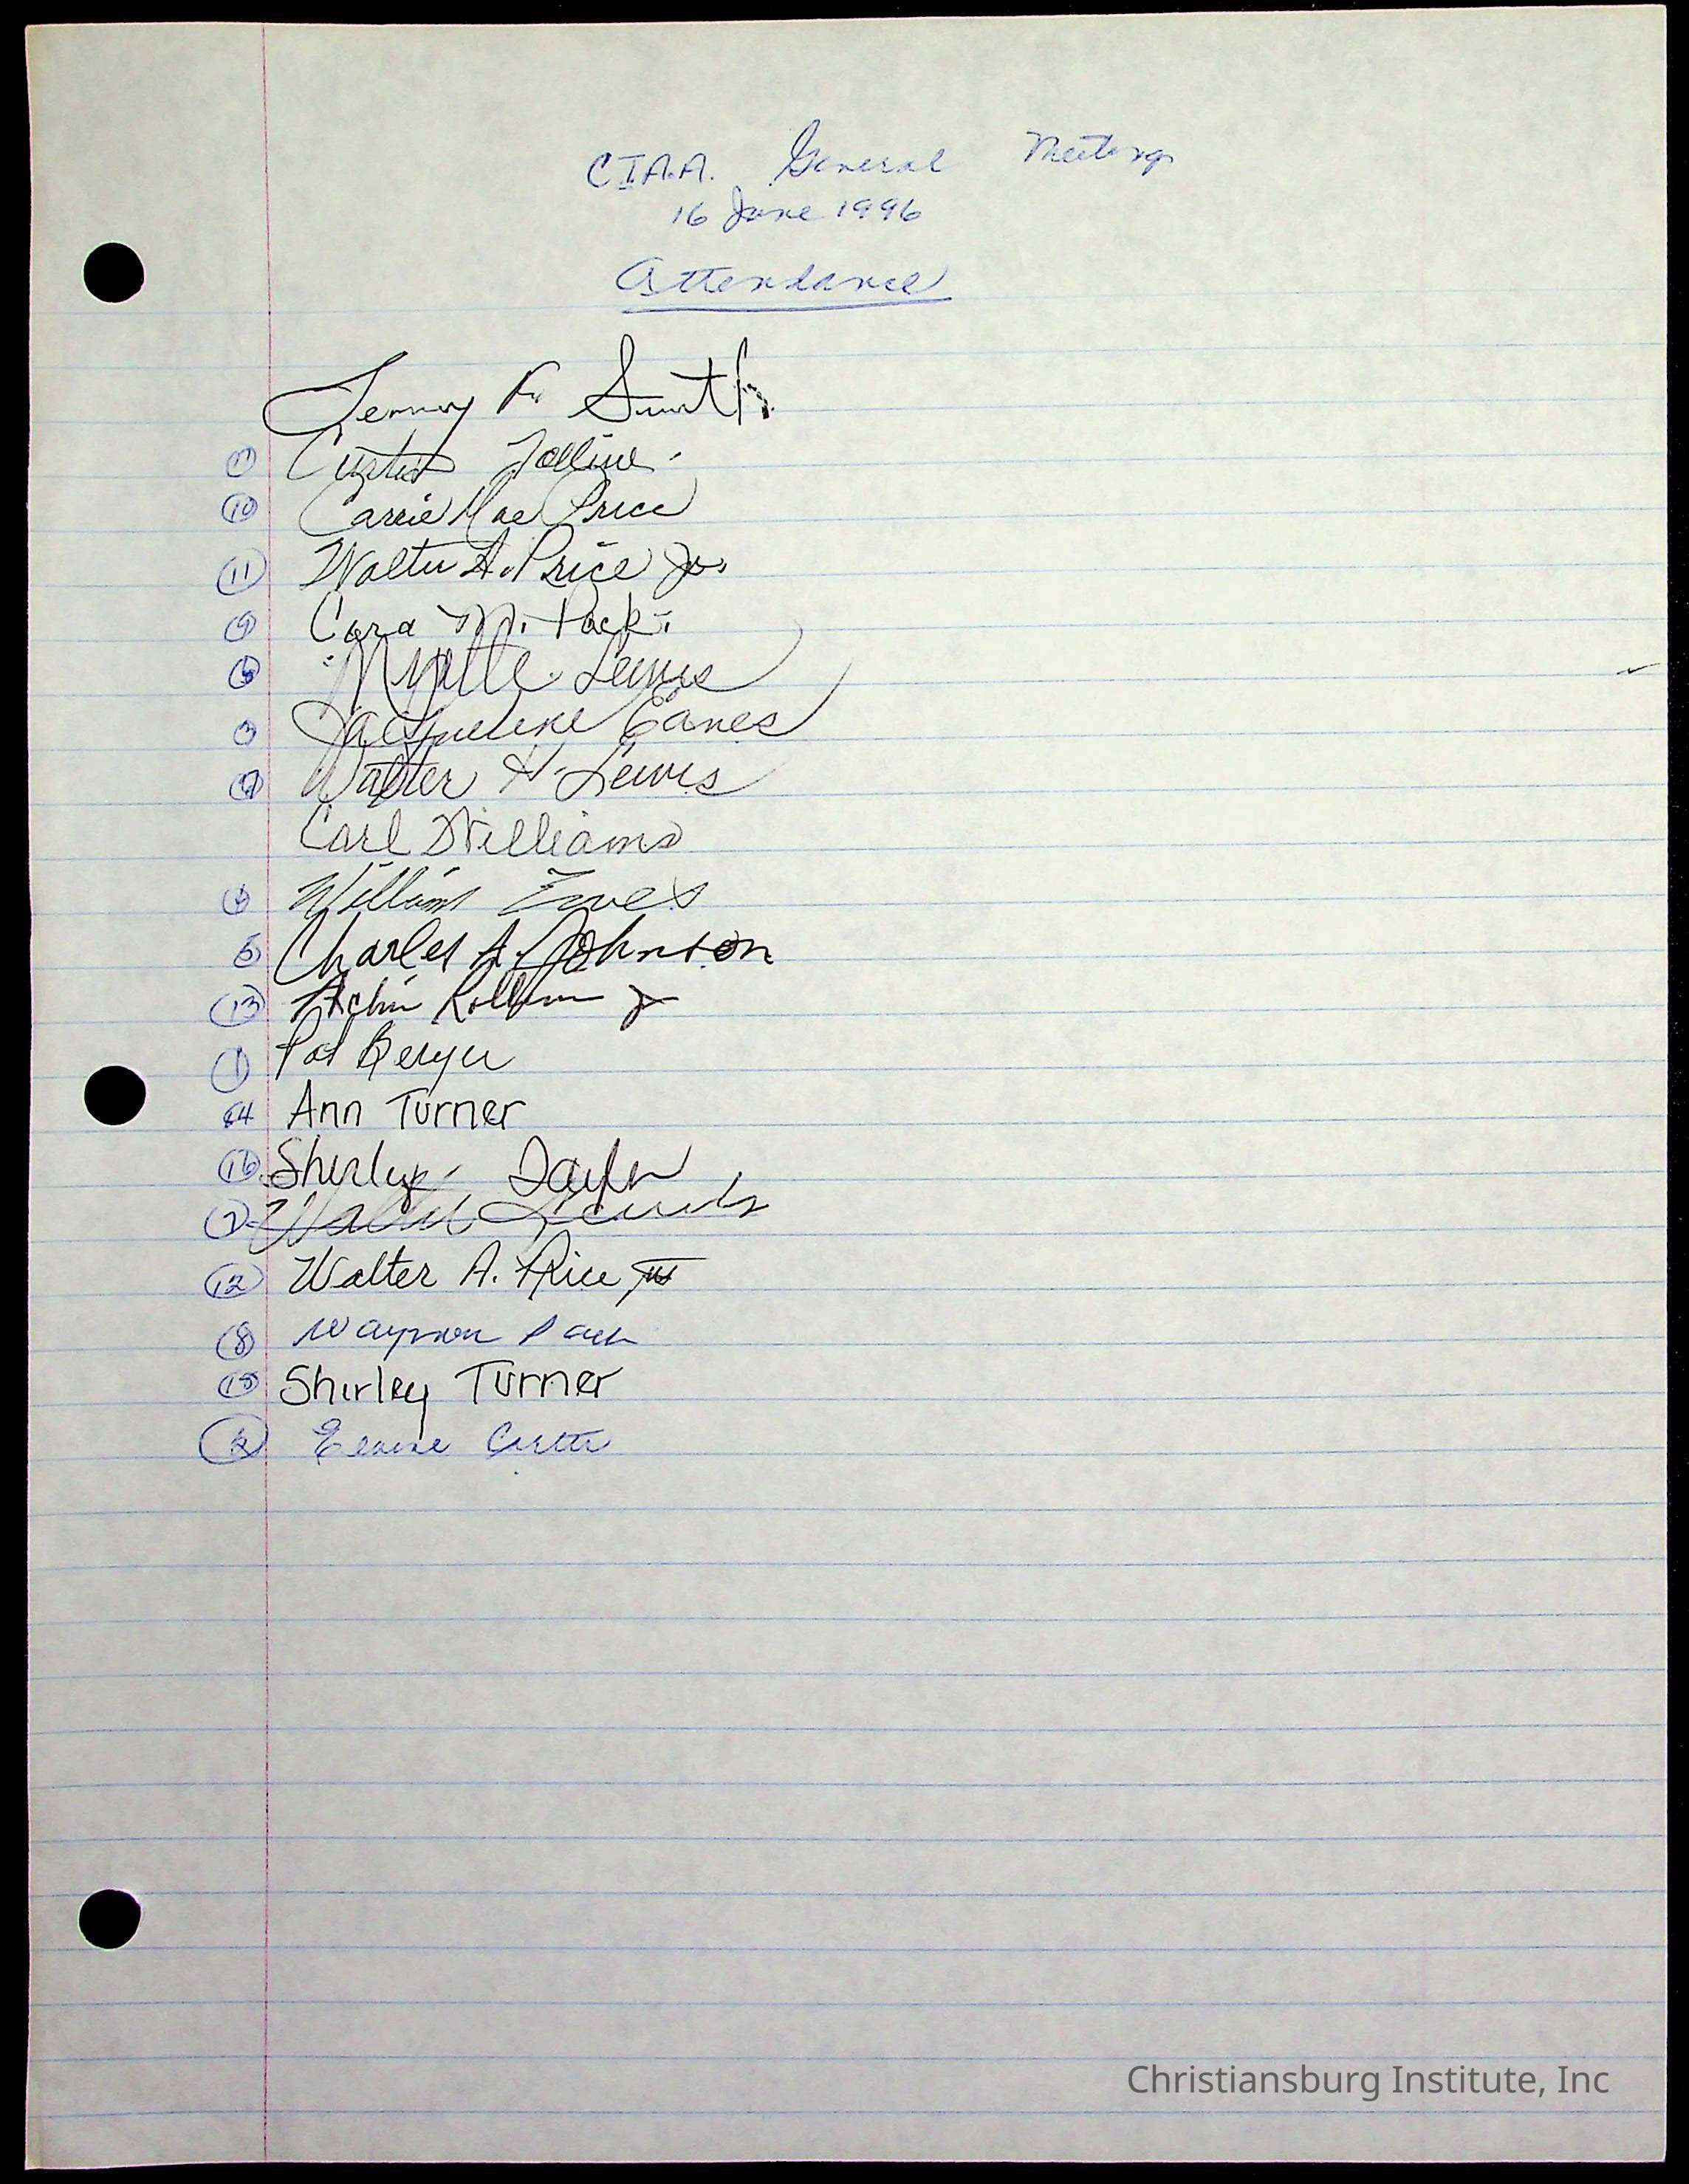 C.I.A.A. General Meeting
16 June 1996
Attendance
F. Smith
Curtis
10 Carrie Mae Price
11 Walter A. Price Jr.
9 Cora M. Pack
6 Myrtle Lewis
3 Jacqueline Eanes
7 Walter H. Lewis
Carl Williams
4 William Eanes
5 Charles A. Johnson
13 Jr
1 Pat
14 Ann Turner
16 Shirley
Walter Lewis
12 Walter A. Price III
8 Waymon Pack
15 Shirley Turner
2 Elaine
Christiansburg Institute, Inc